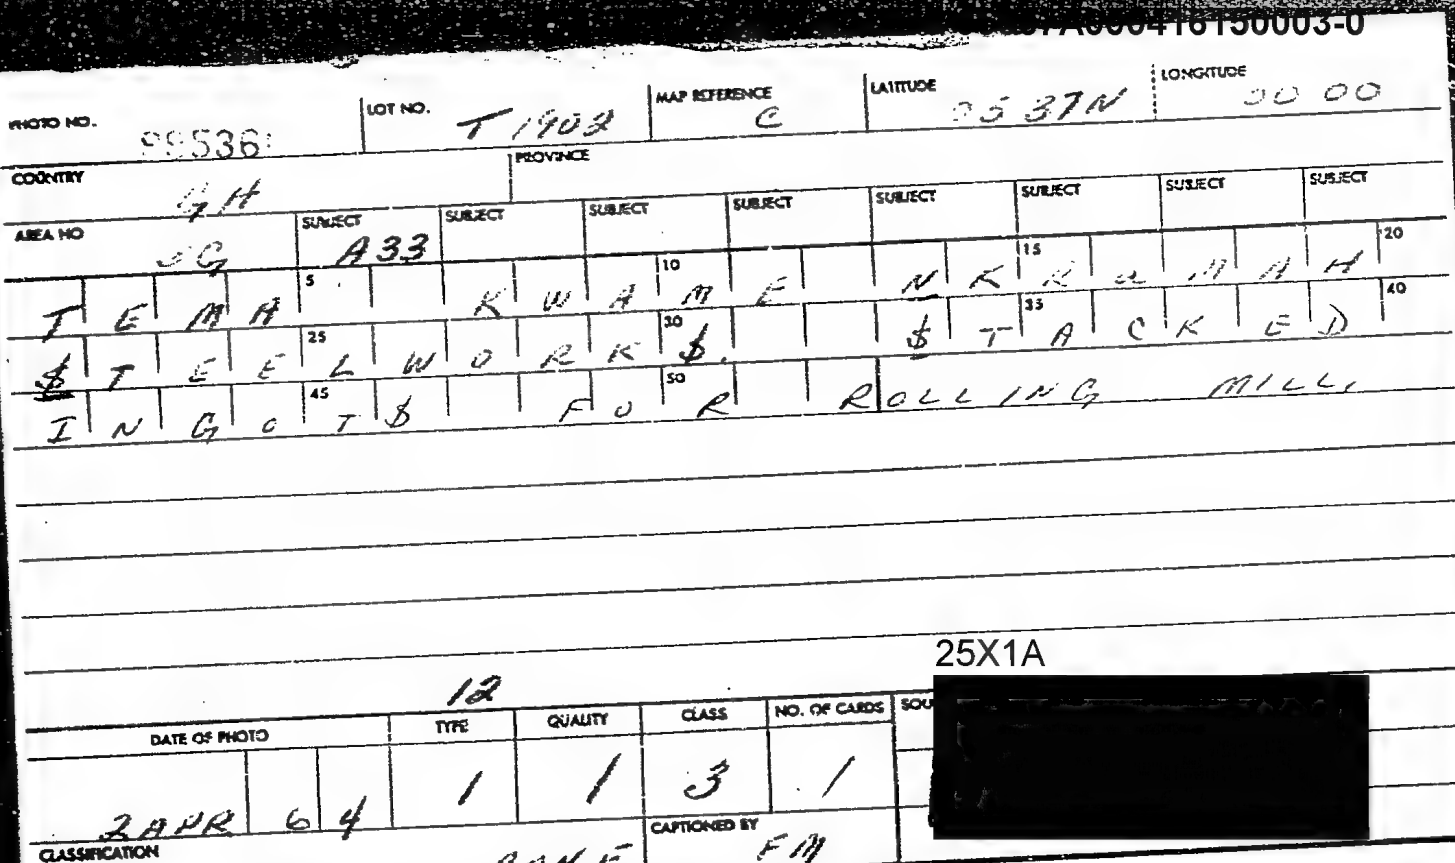 7A000416150003-0
PHOTO NO. 99536 LOT NO. T 1902 MAP REFERENCE C LATITUDE 05 37N LONGITUDE 00 00
COUNTRY GH PROVINCE
AREA NO SUBJECT A33 SUBJECT SUBJECT SUBJECT SUBJECT SUBJECT SUBJECT SUBJECT
5 10 15 20
TEMA KWAME NKRUMAH
25 30 35 40
$TEELWORK$ $TACKED
45 50
INGOT$ FOR ROLLING MILL,
25X1A
12
DATE OF PHOTO TYPE QUALITY CLASS NO. OF CARDS SOU
64 1 1 3 1
CLASSIFICATION CAPTIONED BY